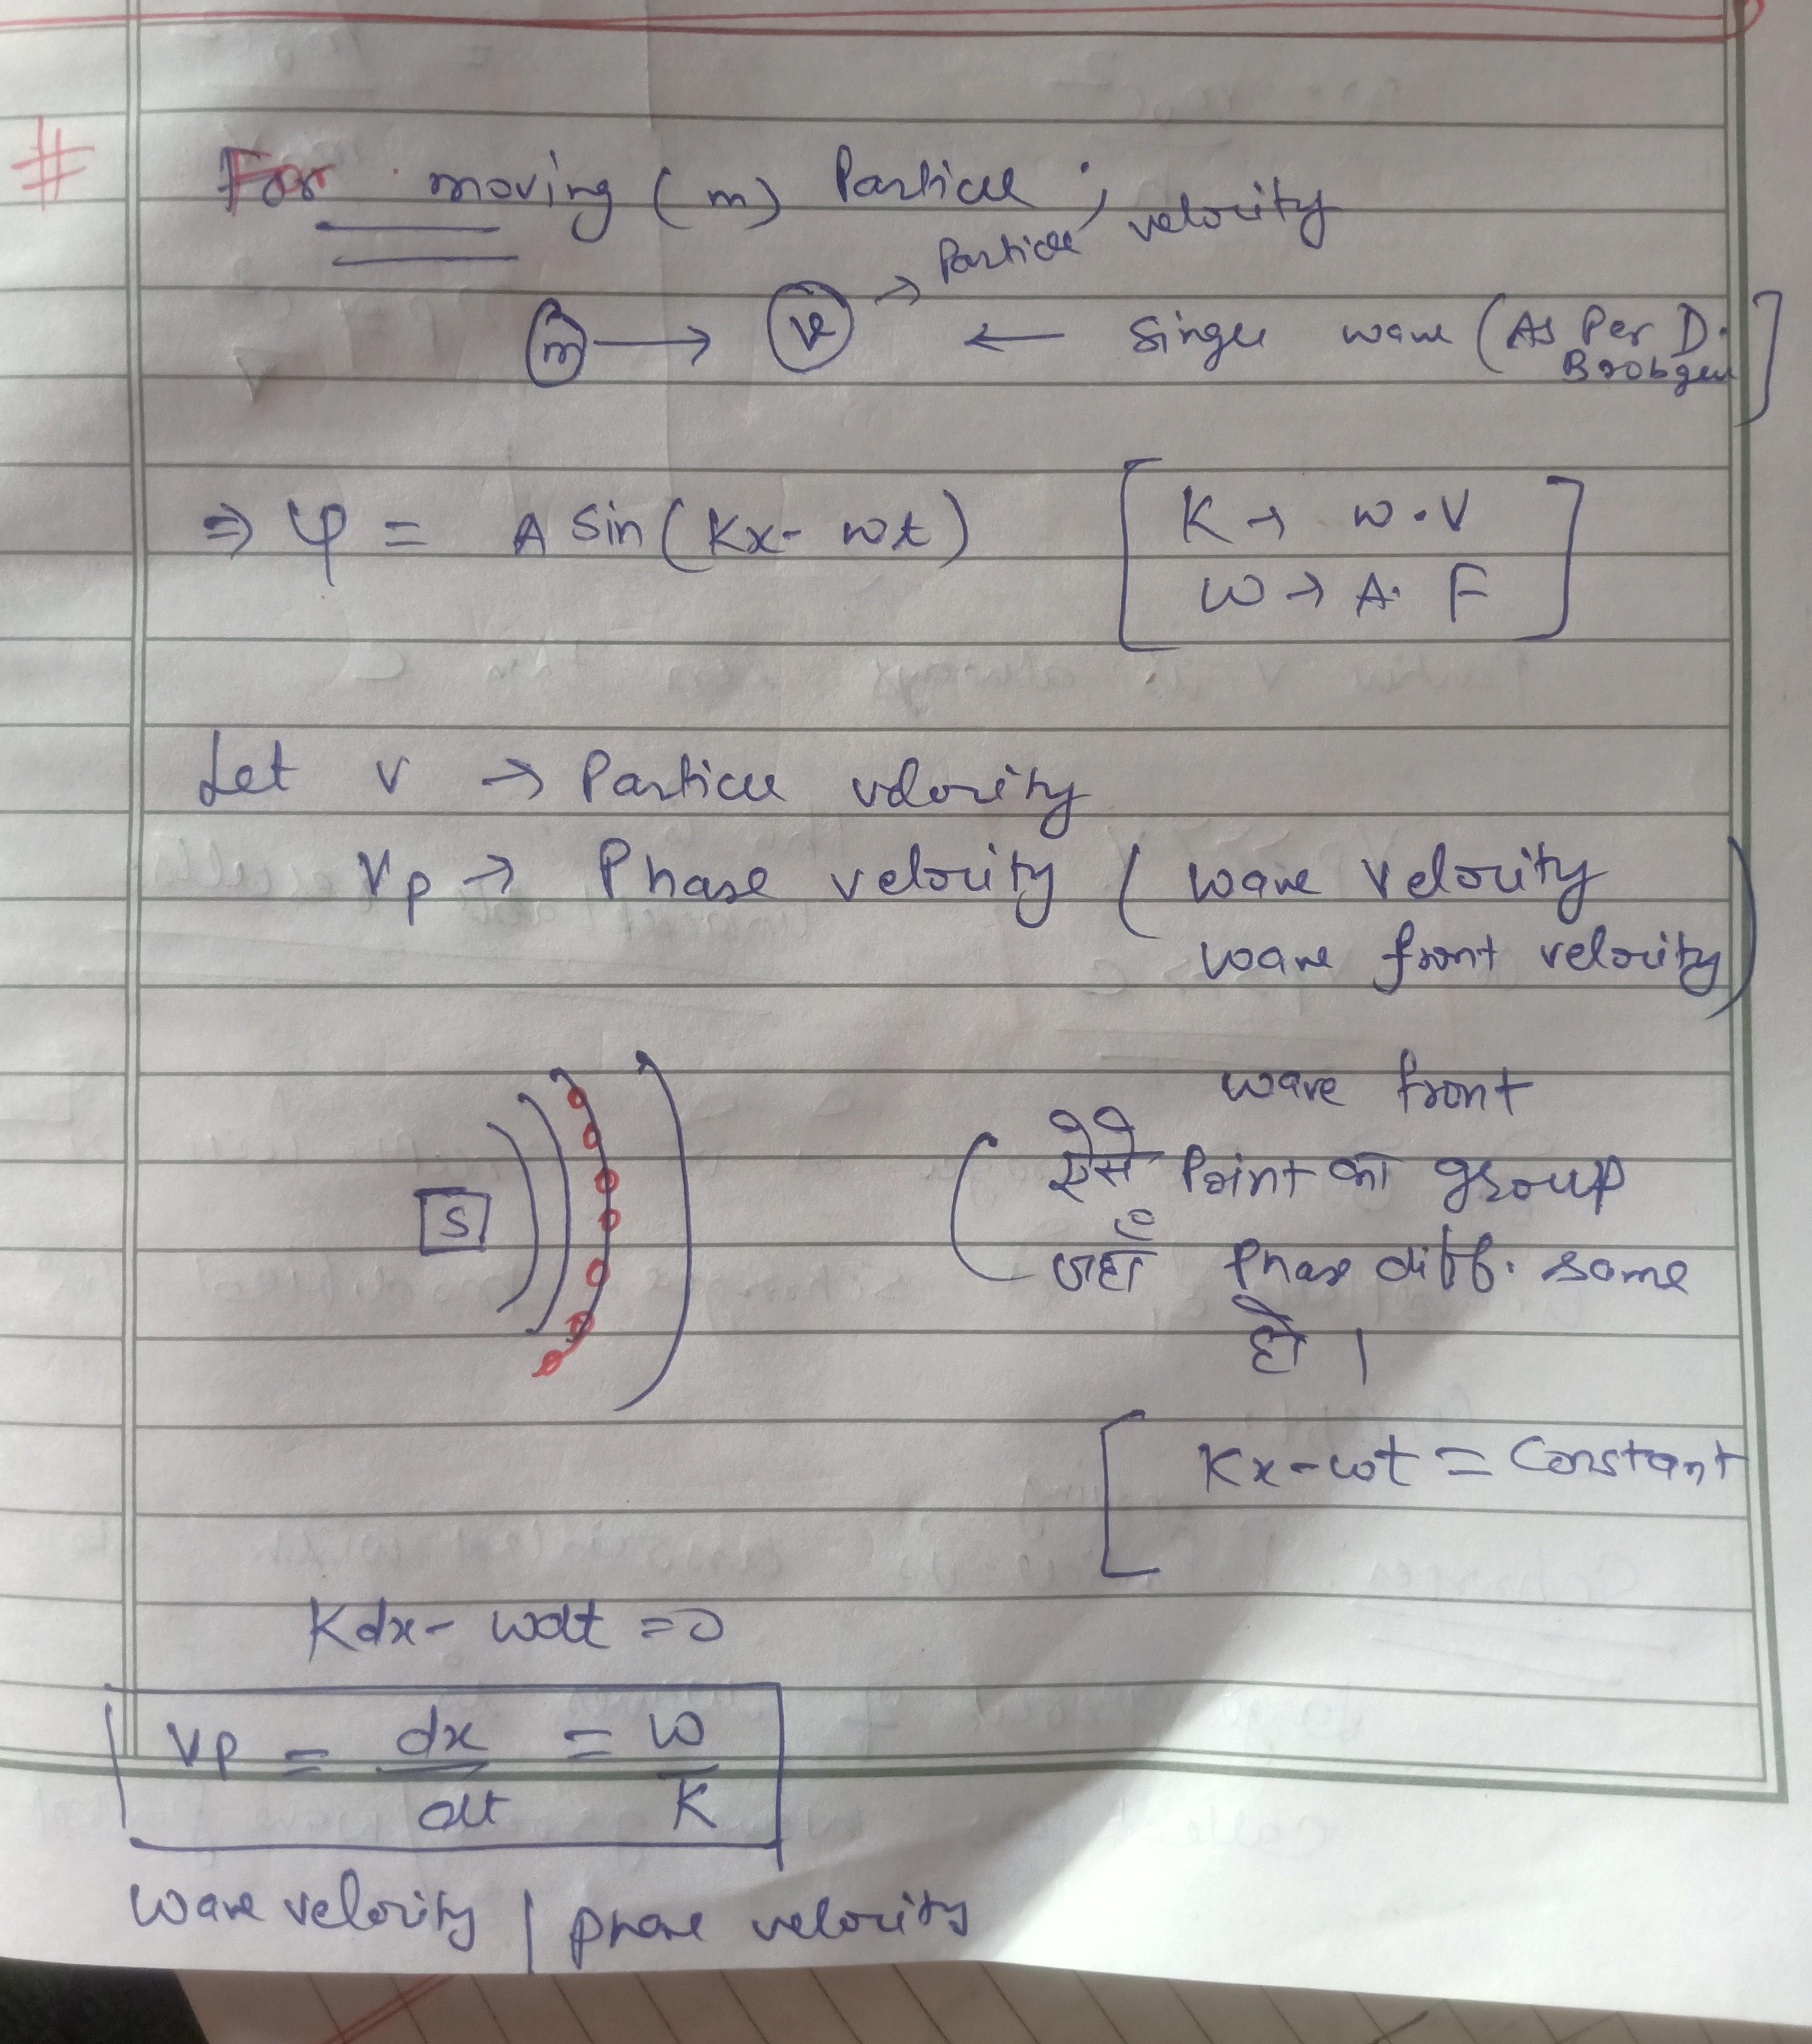 #
For moving (m) Particle ;
Particle velocity
m → v → ← Single wave (As Per D.
⇒ φ = A Sin(Kx - wt) [K → w.V
w → A. F]
Let v → Particle velocity
Vp → Phase velocity (wave velocity
wave front velocity)
wave front
S
(ऐसे Point का group
जहाँ Phase diff. same
हो ।
[Kx - wt = Constant
Kdx - wdt = 0
Vp = dx/dt = w/K
wave velocity | phase velocity